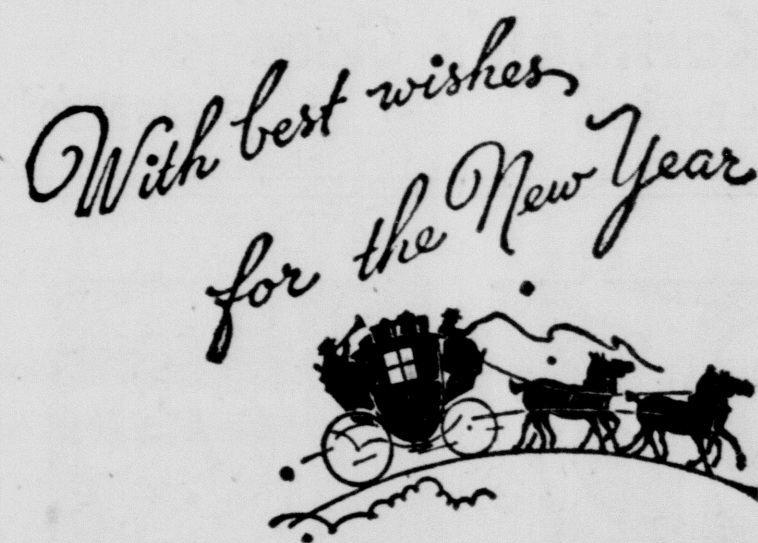 With best wishes
for the New Year